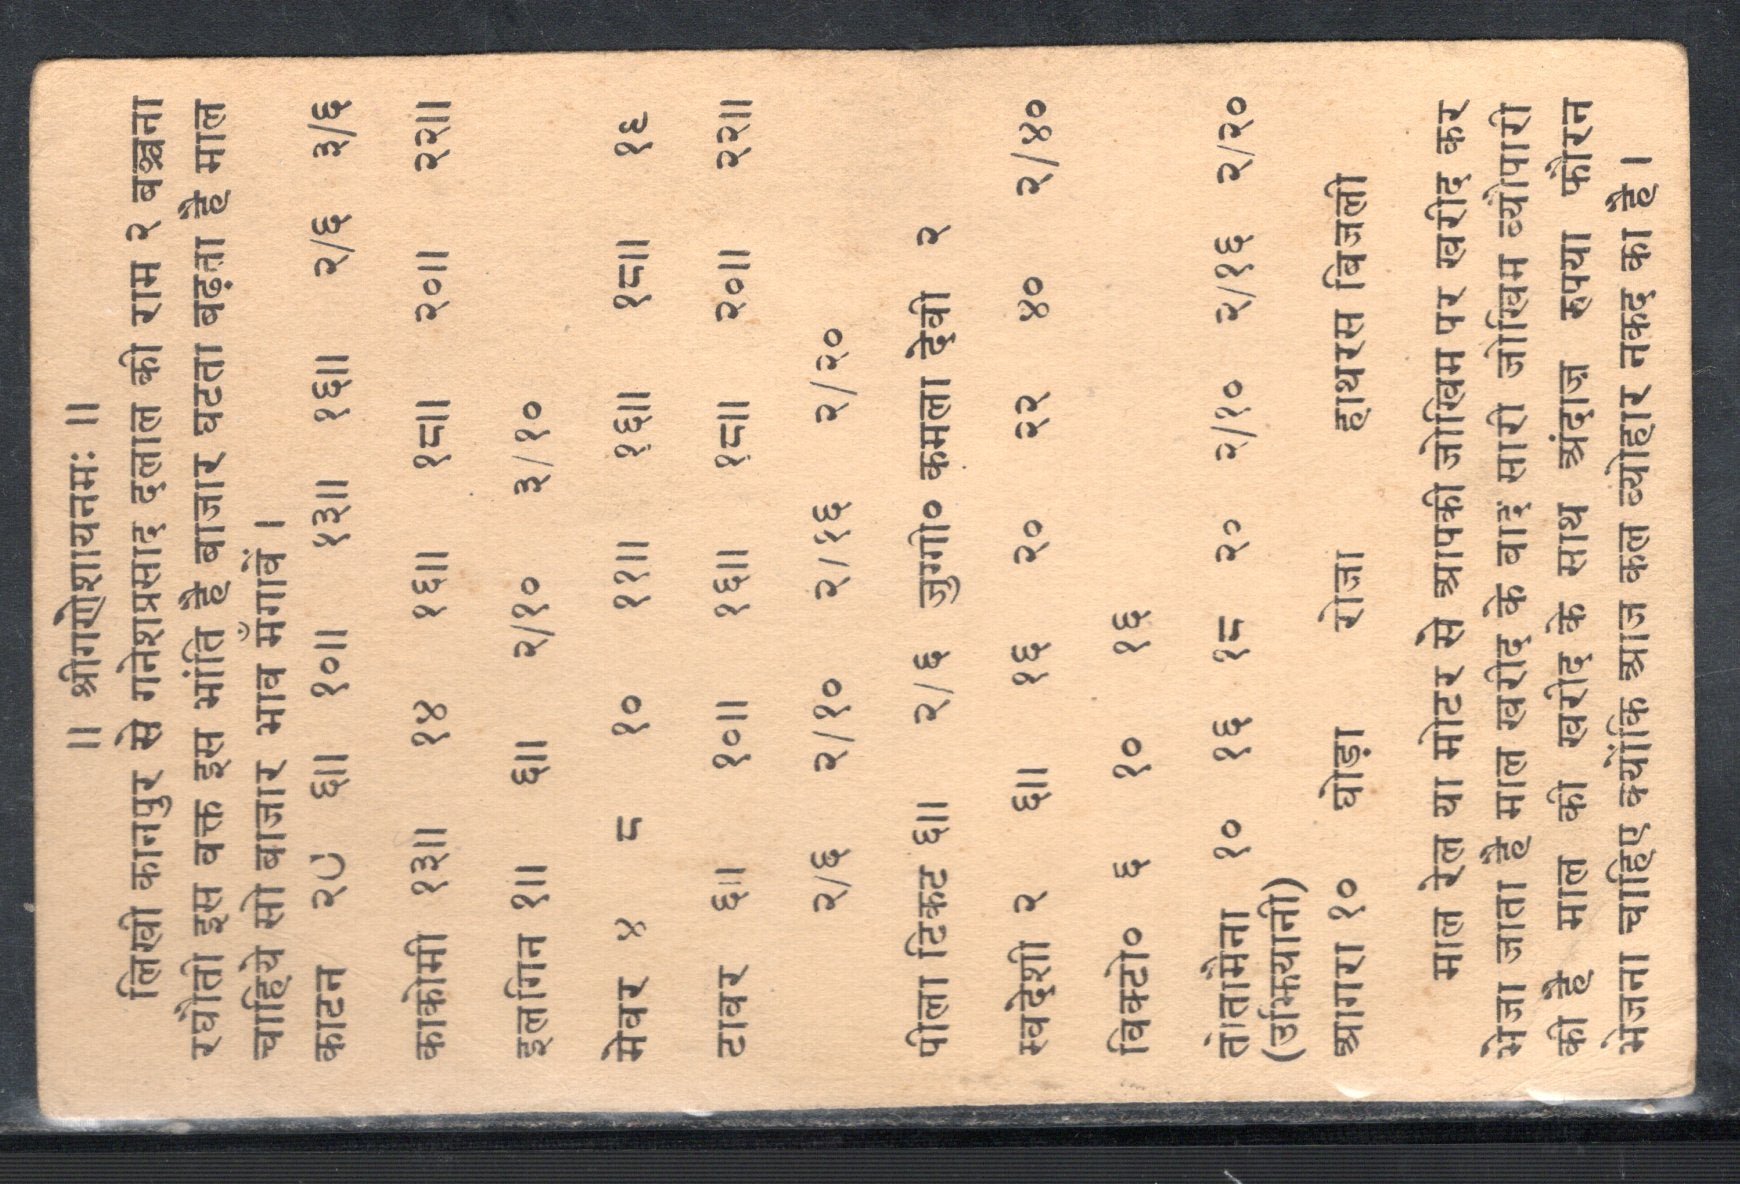 ॥ श्रीगणेशायनमः ॥
लिखी कानपुर से गनेशप्रसाद दलाल की राम २ बञ्चना
रघौती इस वक्त इस भांति है बाजार घटता बढ़ता है माल
चाहिये सो बाजार भाव मँगावें ।
काटन २८ ६॥ १०॥ १३॥ १६॥ २/६ ३/६
काकोमी १३॥ १४ १६॥ १८॥ २०॥ २२॥
इलगिन १॥ ६॥ २/१० ३/१०
मेवर ४ ८ १० ११॥ १६॥ १८॥ १६
टावर ६॥ १०॥ १६॥ १८॥ २०॥ २२॥
२/६ २/१० २/१६ २/२०
पीला टिकट ६॥ २/६ जुगी० कमला देवी २
स्वदेशी २ ६॥ १६ २० २२ ४० २/४०
विक्टो० ६ १० १६
तालमेना १० १६ १८ २० २/१० २/१६ २/२०
आगरा १० घोड़ा रोजा हाथरस बिजली
माल रेल या मोटर से आपकी जोखिम पर खरीद कर
भेजा जाता है माल खरीद के बाद सारी जोखिम व्योपारी
की है माल की खरीद के साथ अंदाज रुपया फौरन
भेजना चाहिए क्योंकि आज कल व्योहार नकद का है ।